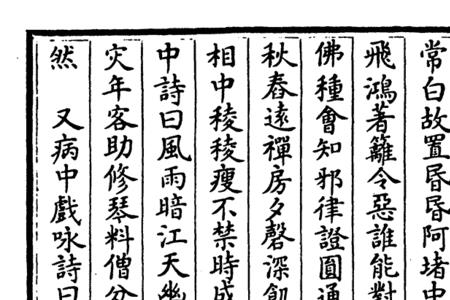 常白故置昬昬阿堵中
飛鴻著籬令惡誰能對
佛種會知邪律證圓通
秋舂遠禪房夕磬深飢
相中稜稜瘦不禁時成
中詩曰風雨暗江天幾
灾年客助修琴料僧分
然　又病中戲咏詩曰